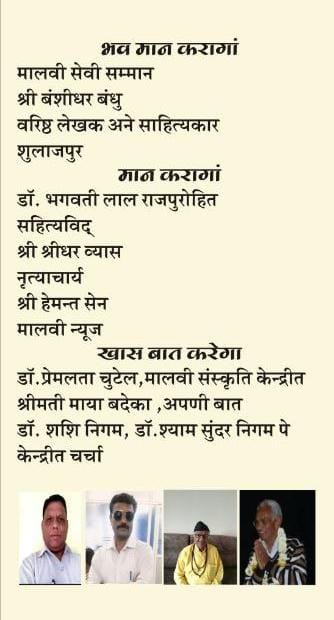 भव मान करागां
मालवी सेवी सम्मान
श्री बंशीधर बंधु
वरिष्ठ लेखक अने साहित्यकार
शुलाजपुर
मान करागां
डॉ. भगवती लाल राजपुरोहित
सहित्यविद्
श्री श्रीधर व्यास
नृत्याचार्य
श्री हेमन्त सेन
मालवी न्यूज
खास बात करेगा
डॉ.प्रेमलता चुटेल,मालवी संस्कृति केन्द्रीत
श्रीमती माया बदेका ,अपणी बात
डॉ. शशि निगम, डॉ.श्याम सुंदर निगम पे
केन्द्रीत चर्चा